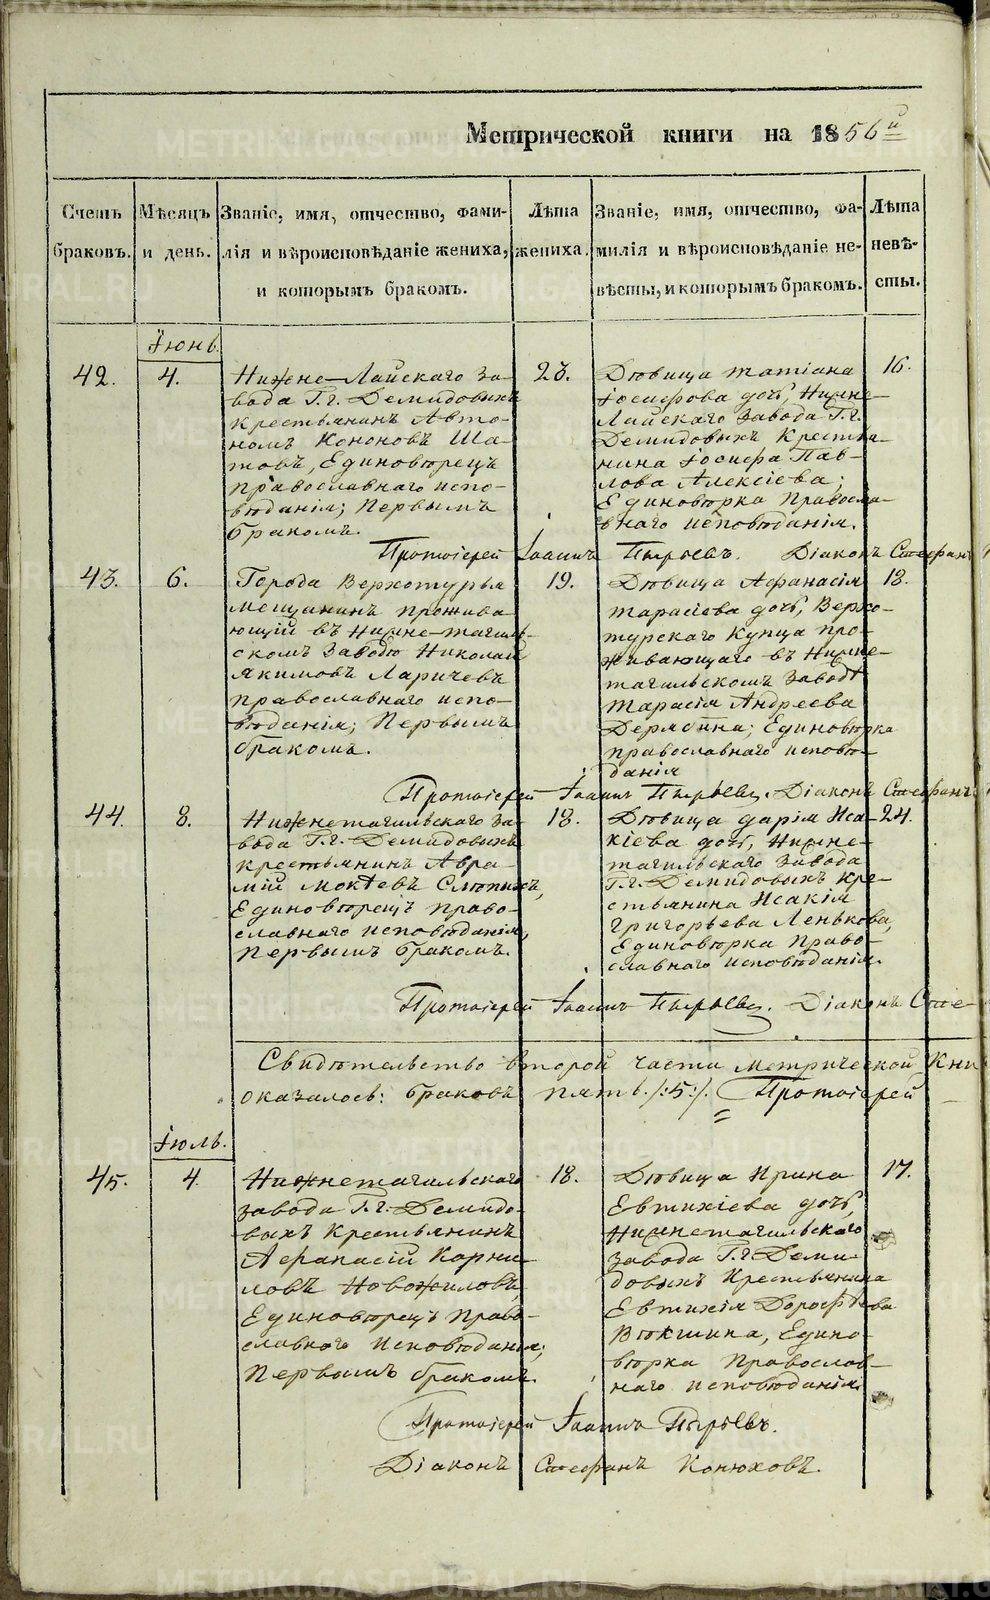 Метрической книги на 1856й
Счетъ браковъ.
Мѣсяцъ и день.
Званіе, имя, отчество, фами-
лія и вѣроисповѣданіе жениха,
и которымъ бракомъ.
Лѣта жениха.
Званіе, имя, отчество, фа-
милія и вѣроисповѣданіе не-
вѣсты, и которымъ бракомъ.
Лѣта невѣ-
сты.
Іюнь.
42.
4.
Нижне-Лайскаго за-
вода Г.г. Демидовыхъ
крестьянинъ Авто-
номъ Кононовъ Ша-
товъ, Единовѣрецъ
православнаго испо-
вѣданія; Первымъ
бракомъ.
23.
Дѣвица Татіана
Іосифова дочь, Нижне-
Лайскаго завода Г.г.
Демидовыхъ Крестья-
нина Іосифа Пав-
лова Алексіева;
Единовѣрка Правосла-
внаго исповѣданія.
16.
Протоіерей Іоаннъ Пырьевъ. Діаконъ Стефанъ
43.
6.
Города Верхотурья
мещанинъ прожива-
ющій въ Нижне-тагиль-
скомъ заводѣ Николай
Якимовъ Ларичевъ
православнаго испо-
вѣданія; Первымъ
бракомъ.
19.
Дѣвица Афанасія
Тарасіева дочь, Верхо-
турскаго Купца про-
живающаго въ Нижне-
тагильскомъ заводѣ
Тарасія Андреева
Дерябина; Единовѣрка
православнаго исповѣ-
данія
18.
Протоіерей Іоаннъ Пырьевъ. Діаконъ Стефанъ
44.
8.
Нижнетагильскаго за-
вода Г.г. Демидовыхъ
крестьянинъ Авра-
мій Мокѣевъ
Единовѣрецъ право-
славнаго исповѣданія,
Первымъ бракомъ.
18.
Дѣвица Дарія Иса-
кіева дочь, Нижне-
тагильскаго завода
Г.г. Демидовыхъ кре-
стьянина Исакія
Григорьева Ленькова,
Единовѣрка Право-
славнаго исповѣданія.
24.
Протоіерей Іоаннъ Пырьевъ. Діаконъ Сте-
Свидѣтельство второй части метрической Кни
оказалось: браковъ пять /:5:/. Протоіерей
Іюль.
45.
4.
Нижнетагильскаго
завода Г.г. Демидо-
выхъ Крестьянинъ
Афанасій Корни-
ловъ Новожиловъ,
Единовѣрецъ Право-
славнаго Исповѣданія;
Первымъ бракомъ.
18.
Дѣвица Ирина
Евтихіева дочь,
Нижнетагильскаго
завода Г.г. Деми-
довыхъ Крестьянина
Евтихія Дорофѣева
Вѣкшина, Едино-
вѣрка Православ-
наго исповѣданія.
17.
Протоіерей Іоаннъ Пырьевъ.
Діаконъ Стефанъ Конюховъ.